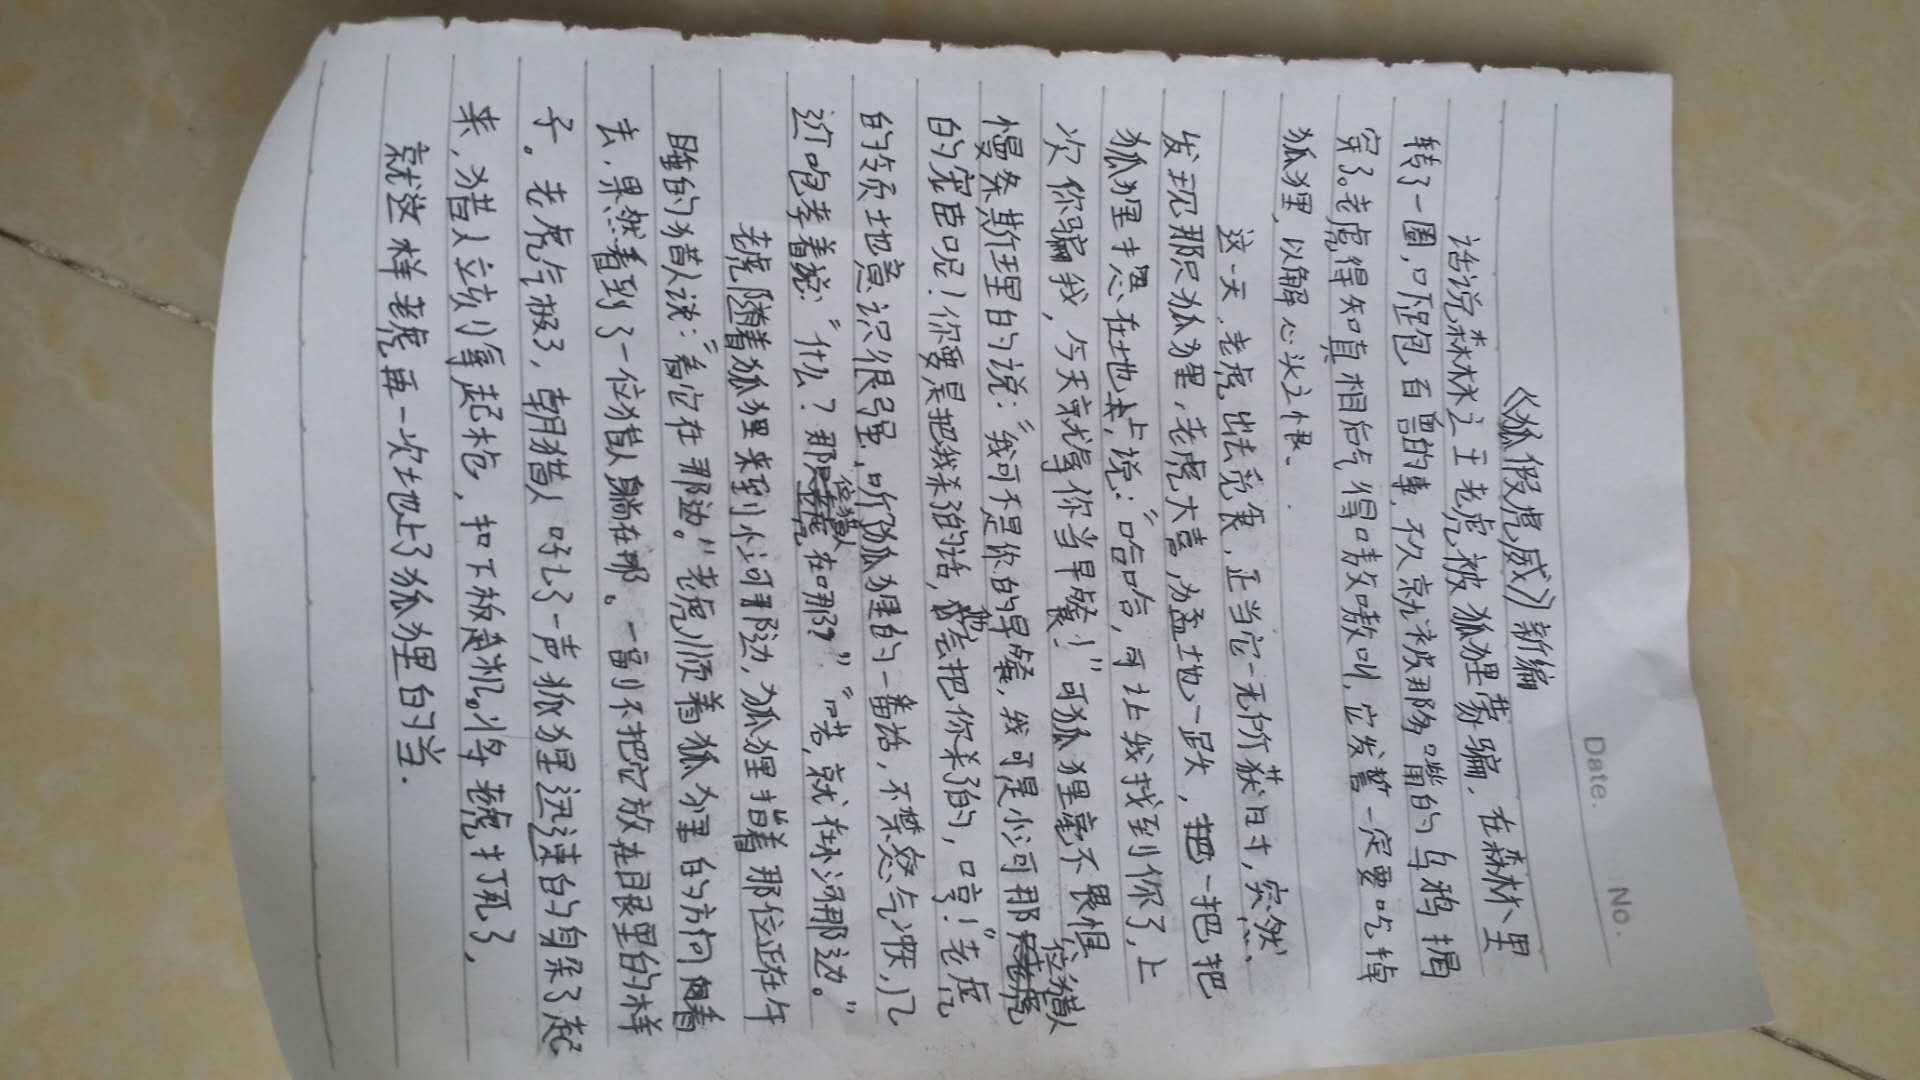 Date.
No.
《狐假虎威》新编
话说森林之王老虎被狐狸蒙骗，在森林里
转了一圈，只吓跑百兽的事，不久就被那多嘴的乌鸦揭
穿了。老虎得知真相后气得嗷嗷叫，它发誓一定要吃掉
狐狸，以解心头之恨。
这一天，老虎出去觅食，正当它一无所获时，突然、
发现那只狐狸，老虎大喜，为猛地一跃，把一把把
狐狸扑在地上，说：“哈哈，可让我找到你了，上
次你骗我，今天就拿你当早餐！”可狐狸毫不畏惧
慢条斯理的说：“我可不是你的早餐，我可是小河那那位猎人
的宠臣呢！你要是把我杀死的话，他会把你杀死的，哼！”老虎
的领地意识很强，听狐狸的一番话，不禁怒气冲跌，几
近咆孝着说：“什么？那位猎人在哪？”“喏，就在小河那边。”
老虎随着狐狸来到小河那边，狐狸指着那位正在午
睡的猎人说：“看它在那边。”老虎顺着狐狸的方向看
去，果然看到了一位猎人躺在那。一副不把它放在眼里的样
子。老虎气极了，朝猎人吼了一声，狐狸迅速的躲了起
来，猎人立刻拿起枪，扣下板机。将老虎打死了，
就这样老虎再一次地上了狐狸的当.